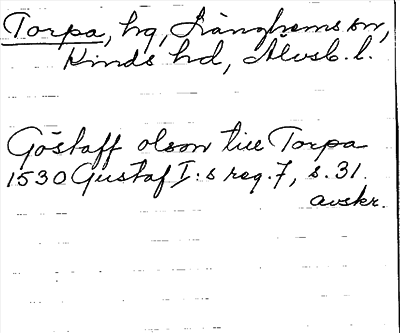 Torpa, hg, Länghems sn,
Kinds hd, Älvsb. l.
Göstaff olson till Torpa
1530 Gustaf I:s reg. 7, s. 31.
avskr.